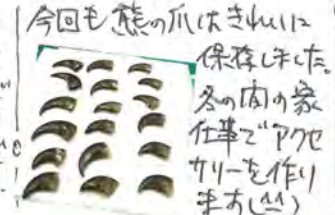 今回も熊の爪はきれいに
保存しました
冬の間の家
仕事でアクセ
サリーを作り
ます(^^)